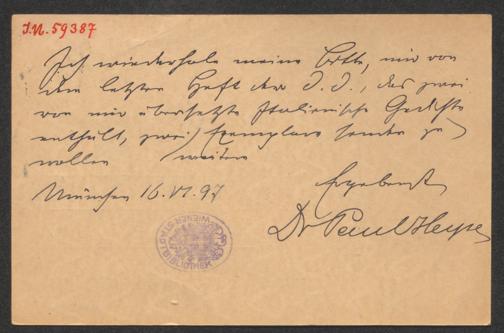 I.N. 59387
Ich wiederhole meine Bitte, mir von
dem letzten Heft der D. D., das zwei
von mir übersetzte Italienische Gedichte
enthält, zwei Exemplare senden zu
wollen
weitere
München 16. VI. 97
Ergebenst
Dr Paul Heyse
WIENER STADTBIBLIOTHEK